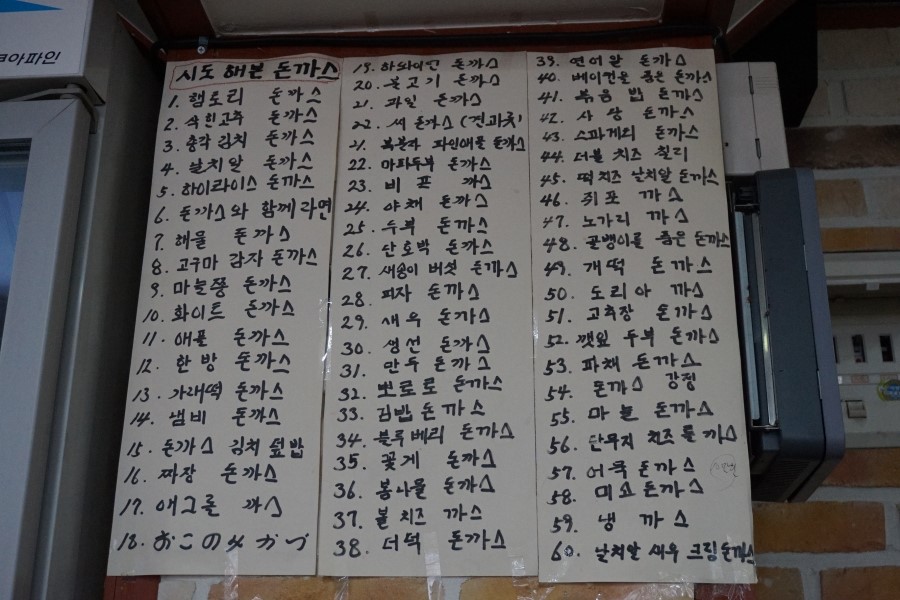 코아파인
시도 해본 돈까스
1. 햄토리 돈까스
2. 삭힌고추 돈까스
3. 총각김치 돈까스
4. 날치알 돈까스
5. 하이라이스 돈까스
6. 돈까스와 함께라면
7. 해물 돈까스
8. 고구마 감자 돈까스
9. 마늘쫑 돈까스
10. 화이트 돈까스
11. 애플 돈까스
12. 한방 돈까스
13. 가래떡 돈까스
14. 냄비 돈까스
15. 돈까스 김치 덮밥
16. 짜장 돈까스
17. 애그롤 까스
18. おこのみかつ
19. 하와이언 돈까스
20. 불고기 돈까스
21. 과일 돈까스
22. 씨돈까스(견과류)
21. 복분자 파인애플 돈까스
22. 마파두부 돈까스
23. 비프 까스
24. 야채 돈까스
25. 두부 돈까스
26. 단호박 돈까스
27. 새송이 버섯 돈까스
28. 피자 돈까스
29. 새우 돈까스
30. 생선 돈까스
31. 만두 돈까스
32. 뽀로로 돈까스
33. 김밥 돈까스
34. 블루베리 돈까스
35. 꽃게 돈까스
36. 봄나물 돈까스
37. 볼치즈 까스
38. 더덕 돈까스
39. 연어알 돈까스
40. 베이컨을 품은 돈까스
41. 볶음밥 돈까스
42. 사상 돈까스
43. 스파게리 돈까스
44. 더블 치즈 칠리
45. 떡치즈 날치알 돈까스
46. 쥐포 까스
47. 노가리 까스
48. 골뱅이를 품은 돈까스
49. 개떡 돈까스
50. 도리아 까스
51. 고추장 돈까스
52. 깻잎 두부 돈까스
53. 파채 돈까스
54. 돈까스 강정
55. 마늘 돈까스
56. 단무지 치즈롤 까스
57. 어묵 돈까스
58. 미소 돈까스
59. 냉 까스
60. 날치알 새우 크림 돈까스